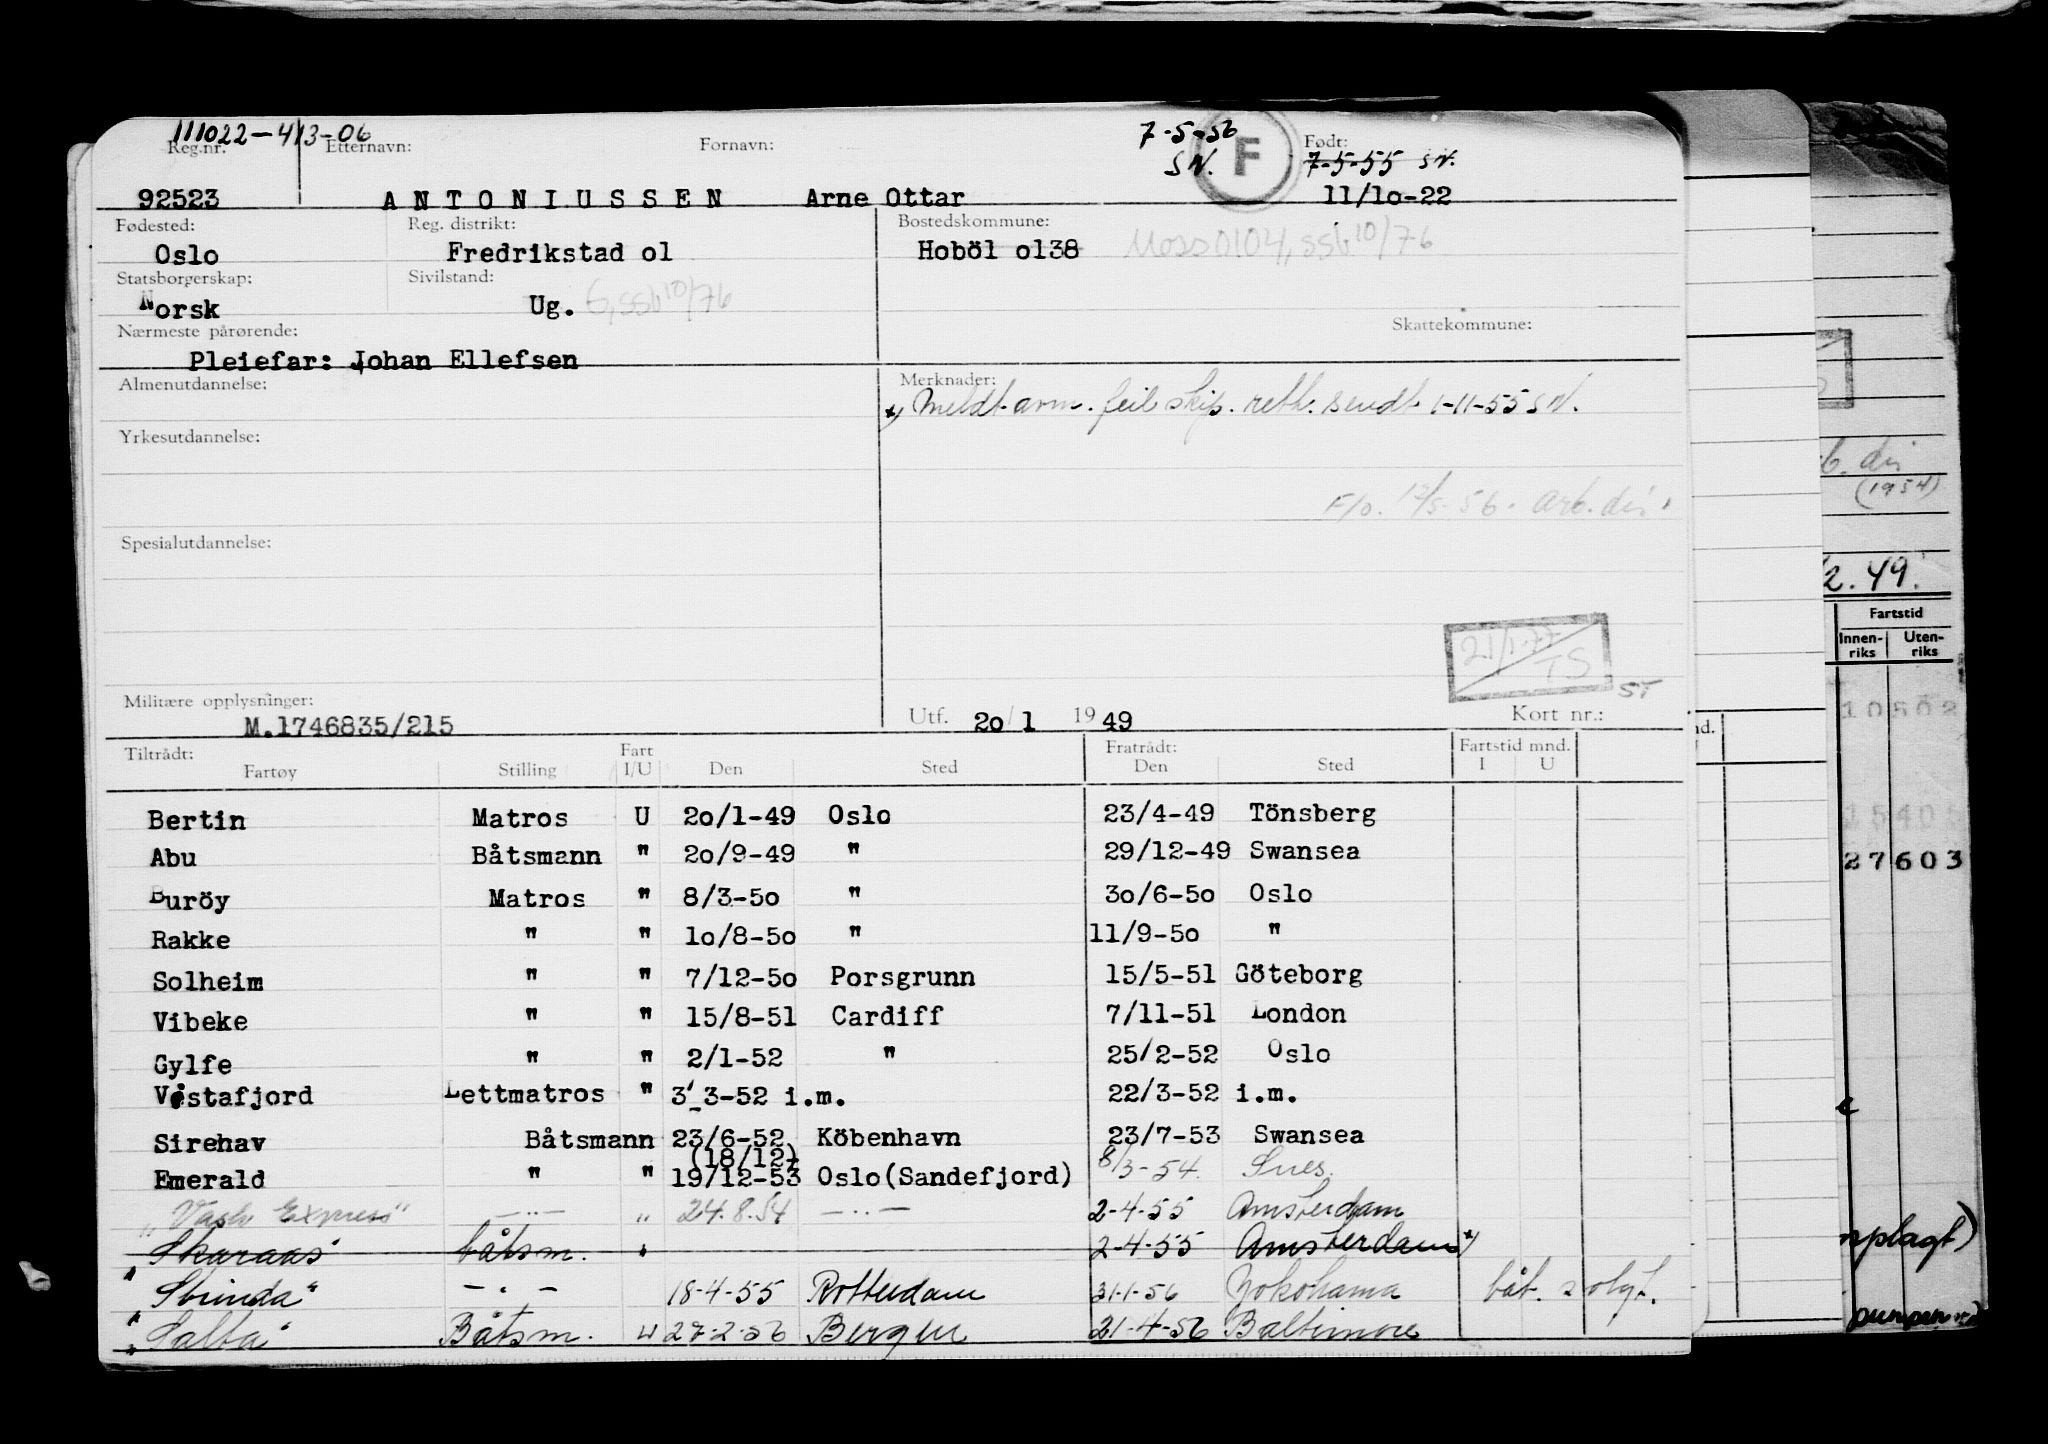 111022-413-06 7-5-56
Reg.nr. Etternavn: Fornavn: SN. F Født: 7-5-55 SN.
92523 ANTONIUSSEN Arne Ottar 11/10-22
Fødested: Reg. distrikt: Bostedskommune:
Oslo Fredrikstad o1 Hoböl o138 Moss 0104, ssb 10/76
Statsborgerskap: Sivilstand:
Norsk Ug. G, ssb 10/76
Nærmeste pårørende: Skattekommune:
Pleiefar: Johan Ellefsen
Almenutdannelse: Merknader:
x) Meldt arm. feil skip. reth. sendt 1-11-55 SN.
Yrkesutdannelse:
F/o. 12/5-56. arb. dir.
b. dir
(1954)
Spesialutdannelse:
2. 49.
Fartstid
Innen-riks Uten-riks
21/1-77
TS
ST
Militære opplysninger: Utf. 20/1 1949 Kort nr.:
M.1746835/215
10502
Tiltrådt: Fart Fratrådt: Fartstid mnd. nd.
Fartøy Stilling I/U Den Sted Den Sted I U
Bertin Matros U 20/1-49 Oslo 23/4-49 Tönsberg
15405
Abu Båtsmann " 20/9-49 " 29/12-49 Swansea
27603
Buröy Matros " 8/3-50 " 30/6-50 Oslo
Rakke " " 10/8-50 " 11/9-50 "
Solheim " " 7/12-50 Porsgrunn 15/5-51 Göteborg
Vibeke " " 15/8-51 Cardiff 7/11-51 London
Gylfe " " 2/1-52 " 25/2-52 Oslo
Vestafjord Lettmatros " 3/3-52 i.m. 22/3-52 i.m.
Sirehav Båtsmann 23/6-52 Köbenhavn 23/7-53 Swansea
(18/12)
Emerald " " 19/12-53 Oslo(Sandefjord) 8/3-54. Sues.
"Vask Express" -"- " 24.8.54 -"- 2-4-55 Amsterdam
"Skaraas" båtsm. " 2-4-55 Amsterdam x)
nplagt)
"Strinda" -"- 18-4-55 Rotterdam 31-1-56 Yokohama båt. solgt.
"Salta" Båtsm. U 27-2-56 Bergen 21-4-56 Baltimore